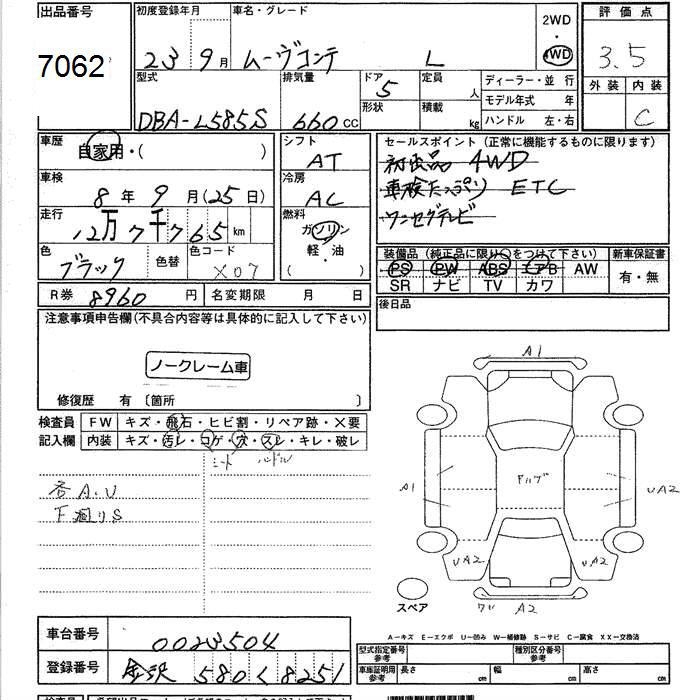 出品番号
7062
初度登録年月
23 9月
車名・グレード
ムーヴコンテ L
2WD
・
4WD
評価点
3.5
外装 内装
C
型式
DBA-L585S
排気量
660 cc
ドア
5
形状
定員
人
積載
kg
ディーラー・並行
モデル年式 年
ハンドル 左・右
車歴
自家用・( )
車検
8年 9月(25日)
走行
12万7千765 km
色
ブラック
色替
色コード
X07
シフト
AT
冷房
AC
燃料
ガソリン
軽・油
( )
セールスポイント(正常に機能するものに限ります)
初出品 4WD
車検たっぷり ETC
ワンセグテレビ
装備品(純正品に限り○をつけて下さい)
PS PW ABS エアB AW
SR ナビ TV カワ
新車保証書
有・無
R券 8960 円
名変期限 月 日
後日品
注意事項申告欄(不具合内容等は具体的に記入して下さい)
ノークレーム車
修復歴 有〔箇所 〕
検査員
記入欄
FW キズ・飛石・ヒビ割・リペア跡・×要
内装 キズ・汚レ・コゲ・穴・スレ・キレ・破レ
シート ハンドル
各A.U
下廻りS
A1
A1
UA2
UA2
UA2
A2
スペア
A-キズ E-エクボ U-凹み W-補修跡 S-サビ C-腐食 XX-交換済
車台番号
0023504
登録番号
金沢 580 く 8251
型式指定番号
参考
種別区分番号
参考
車庫証明用
参考
長さ cm
幅 cm
高さ cm